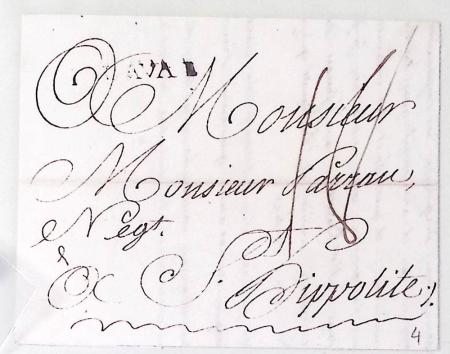 A Monsieur
Monsieur Sarran,
Négt.
à S. Hippolite.
4